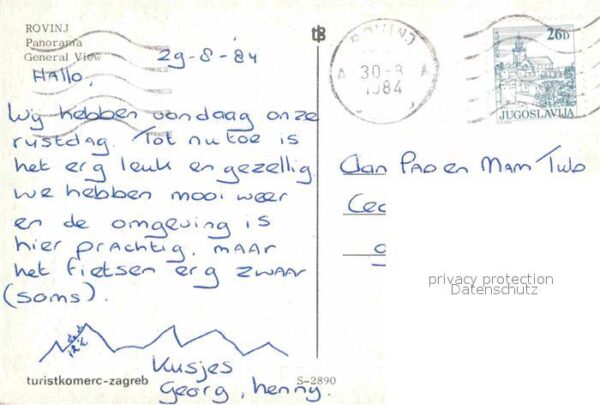 ROVINJ
Panorama
General View
29-8-'84
Hallo,
Wij hebben vandaag onze
rustdag. Tot nu toe is
het erg leuk en gezellig
we hebben mooi weer
en de omgeving is
hier prachtig, maar
het fietsen erg zwaar
(soms).
Kusjes
Georg, Henny.
turistkomerc-zagreb
S-2890
ROVINJ
30-8
1984
26D
JUGOSLAVIJA
Aan Pa en Mam
privacy protection
Datenschutz